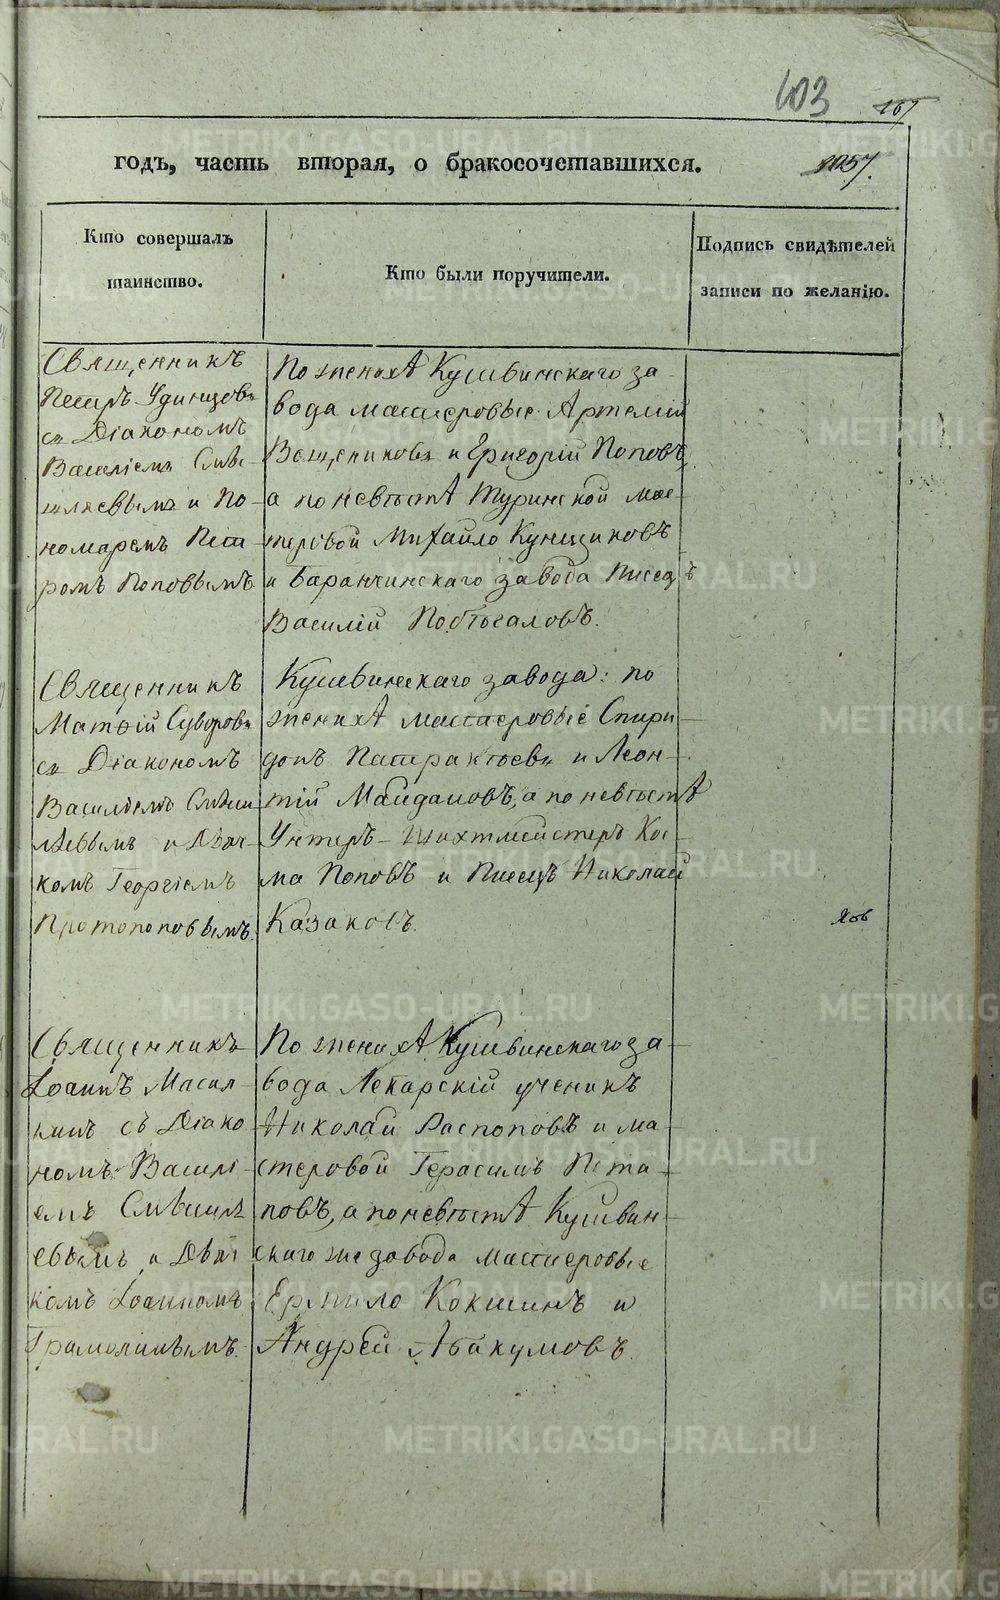 103
167
годъ, часть вторая, о бракосочетавшихся.
1057.
Кто совершалъ
таинство.
Кто были поручители.
Подпись свидѣтелей
записи по желанію.
Священникъ
Петръ Удинцовъ
съ Діакономъ
Василіемъ Смѣ-
шляевымъ и По-
номаремъ Пет-
ромъ Поповымъ
По женихѣ Кушвинскаго за-
вода мастеровые Артемій
Вещениковъ и Григорій Поповъ,
а по невѣстѣ Туринской мас-
теровой Михайло Кунщиковъ
и Баранчинскаго завода Писецъ
Василій Подъѣгаловъ.
Священникъ
Матѳій Суворовъ
съ Діакономъ
Василіемъ Смѣш-
лѣевымъ и Дьяч-
комъ Георгіемъ
Протопоповымъ.
Кушвинскаго завода: по
женихѣ мастеровые Спири-
донъ Патракѣевъ и Леон-
тій Майдановъ, а по невѣстѣ
Унтеръ-Шихтмейстеръ Кос-
ма Поповъ и Писецъ Николай
Казаковъ.
Священникъ
Іоаннъ Масал-
кинъ съ Діако
номъ Василі-
емъ Смѣшлѣ
евымъ и Дьяч
комъ Іоанномъ
Грамолинымъ.
По женихѣ Кушвинскаго за-
вода Лекарскій ученикъ
Николай Распоповъ и ма-
стеровой Герасимъ Пота-
повъ, а по невѣстѣ Кушвин-
скаго же завода мастеровые
Ермило Кокшинъ и
Андрей Абакумовъ.
METRIKI.GASO-URAL.RU